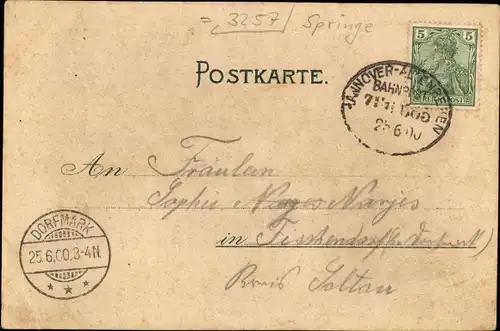 = 3257 / Springe
5
POSTKARTE.
HANNOVER-ALTENBEKEN
BAHNPOST
25 6 00
An Fräulein
Sophie Narjes
in Fischendorf (b. Dorfmark)
Kreis Soltau
DORFMARK
25.6.00.3-4N.
* * *